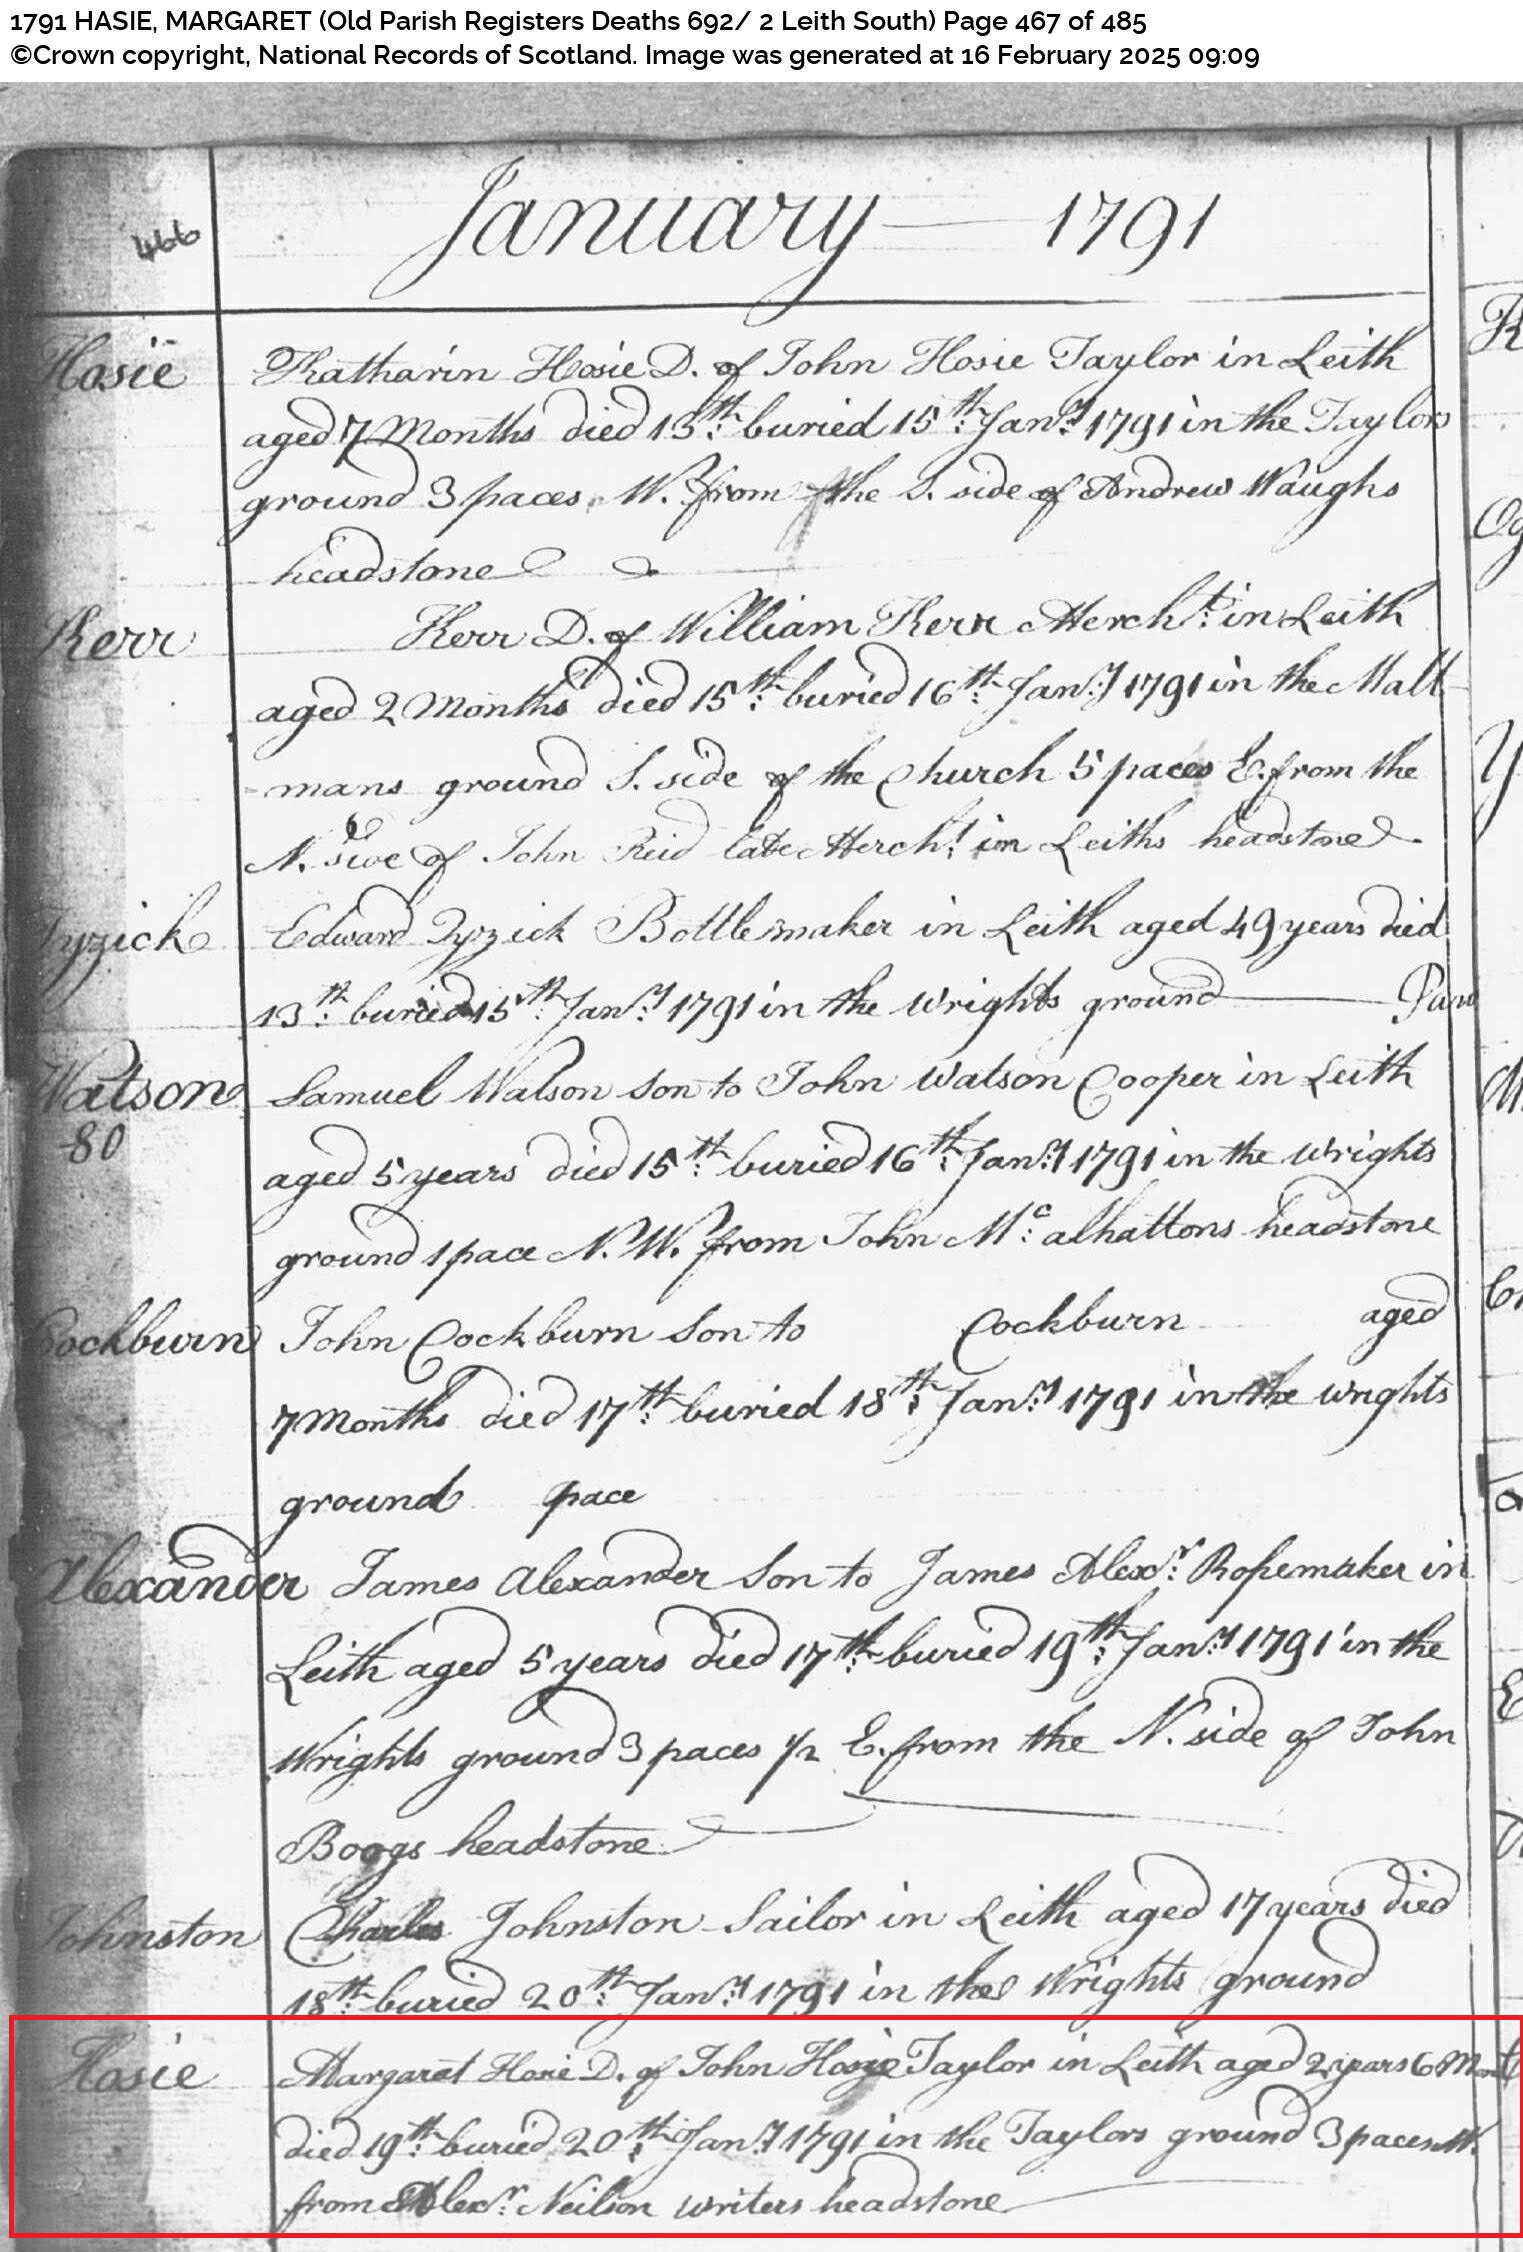 1791 HASIE, MARGARET (Old Parish Registers Deaths 692/ 2 Leith South) Page 467 of 485
©Crown copyright, National Records of Scotland. Image was generated at 16 February 2025 09:09
466
January — 1791
Hosie
Katharin Hosie D. of John Hosie Taylor in Leith
aged 7 Months died 13th buried 15th Jany 1791 in the Taylors
ground 3 paces W. from the S. side of Andrew Waughs
headstone
Kerr
Kerr D. of William Kerr Mercht in Leith
aged 2 Months died 15th buried 16th Jany 1791 in the Malt
-mans ground S. side of the Church 5 paces E. from the
N. side of John Reid late Mercht in Leiths headstone
Tyzick
Edward Tyzick Bottlemaker in Leith aged 49 years died
13th buried 15th Jany 1791 in the Wrights ground —
Watson
80
Samuel Watson Son to John Watson Cooper in Leith
aged 5 years died 15th buried 16th Jany 1791 in the Wrights
ground 1 pace N. W. from John Mc alhattons headstone
Cockburn
John Cockburn Son to Cockburn aged
7 Months died 17th buried 18th Jany 1791 in the wrights
ground pace
Alexander
James Alexander Son to James Alexr Ropemaker in
Leith aged 5 years died 17th buried 19th Jany 1791 in the
Wrights ground 3 paces 1/2 E. from the N. side of John
Boogs headstone
Johnston
Charles Johnston Sailor in Leith aged 17 years died
18th buried 20th Jany 1791 in the Wrights ground
Hosie
Margarat Hosie D. of John Hosie Taylor in Leith aged 2 years 6 Mont
died 19th buried 20th Jany 1791 in the Taylors ground 3 paces W.
from Alexr Neilson writers headstone